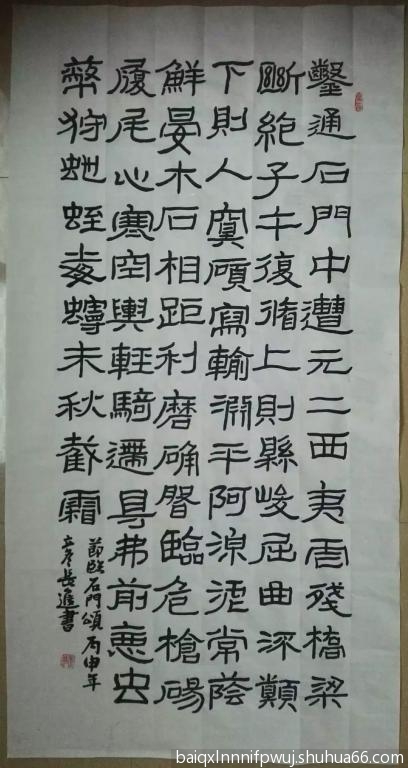 鑿通石門中遭元二西夷虐殘橋梁
斷絕子午復脩上則縣峻屈曲流顛
下則人寞廎寫輸淵平阿湶泥常蔭
鮮晏木石相距利磨确磐臨危槍碭
履尾心寒空輿輕騎遰㝵弗前惡虫
蔽狩虵蛭毒蟃未秋截霜
節臨石門頌丙申年
長進書
baiqxlnnnifpwuj.shuhua66.com